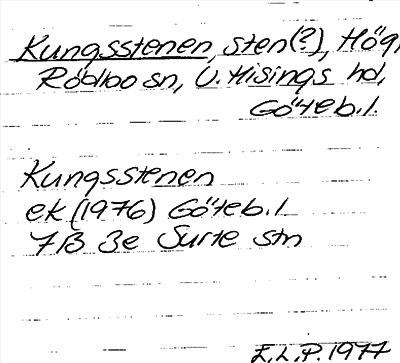 Kungsstenen, sten(?), Hög,
Rödbo sn, V. Hisings hd,
Göteb.l.
Kungsstenen
ek (1976) Göteb.l
7B 3e Surte stn
E.L.P. 1977